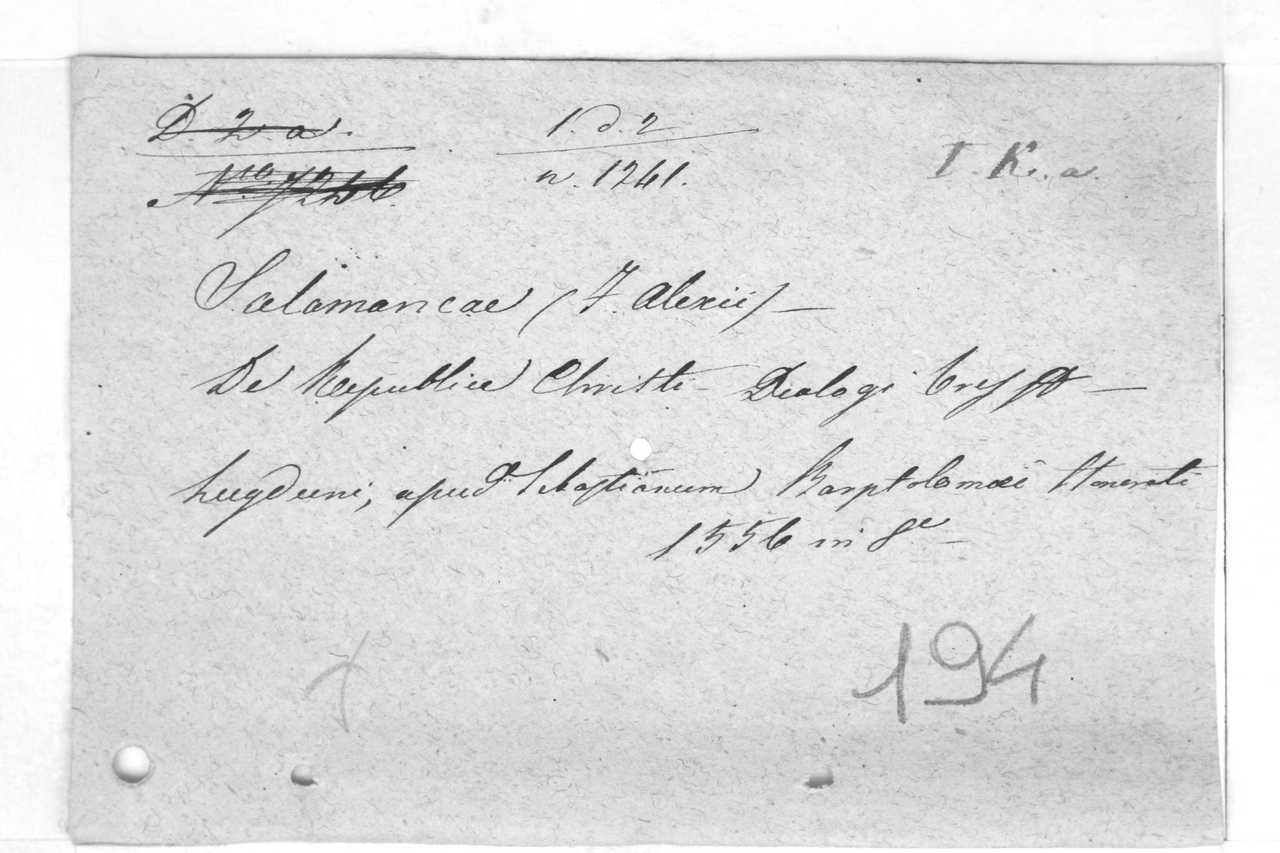 D. 2. a. 1. d. 2 I. K. a.
N.ro 7246. n. 1241.
Salamancae (F. Alexii) —
De Republica Christi Dialogi tres —
Lugduni, apud Sebastianum Barptolomaei Honorati
1556 in 8°—
194